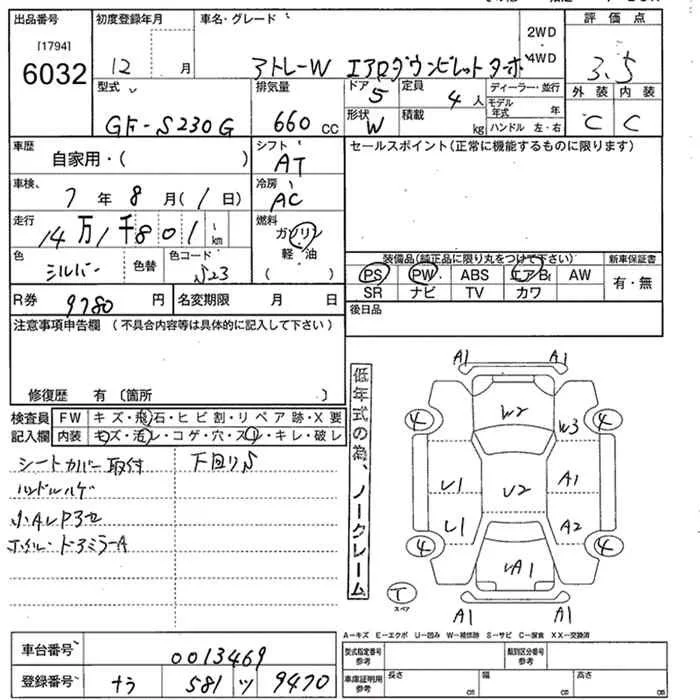 出品番号 初度登録年月 車名・グレード 評価点
[1794]
6032
12 月
アトレーW エアロダウンビレットターボ
2WD
4WD
3.5
型式 排気量 ドア 定員 ディーラー・並行 外装 内装
GF-S230G 660 cc 5 4人 モデル年式 年 C C
形状 W 積載 kg ハンドル 左・右
車歴 シフト セールスポイント(正常に機能するものに限ります)
自家用・( ) AT
車検、 冷房
7年 8月(1日) AC
走行 燃料
14万1千801 km ガソリン
軽・油
( )
色 色コード
シルバー 色替 S23
装備品(純正品に限り丸をつけて下さい) 新車保証書
PS PW ABS エアB AW 有・無
SR ナビ TV カワ
R券 9780 円 名変期限 月 日 後日品
注意事項申告欄(不具合内容等は具体的に記入して下さい)
修復歴 有〔箇所 〕
検査員 FW キズ・飛石・ヒビ割・リペア跡・X要
記入欄 内装 キズ・汚レ・コゲ・穴・スリ・キレ・破レ
シートカバー取付 下回りS
ハンドルハゲ
小A
ドアミラーA
低年式の為、ノークレーム
A1 A1
W2
4 W3 4
U1 U2 A1
U1 A2
4 4
A1
T
スペア
A1 A1
A-キズ E-エクボ U-凹み W-補修跡 S-サビ C-腐食 XX-交換済
車台番号 0013469
型式指定番号 参考 類別区分番号 参考
登録番号 なら 581 ツ 9470
車庫証明用 参考 長さ cm 幅 cm 高さ cm